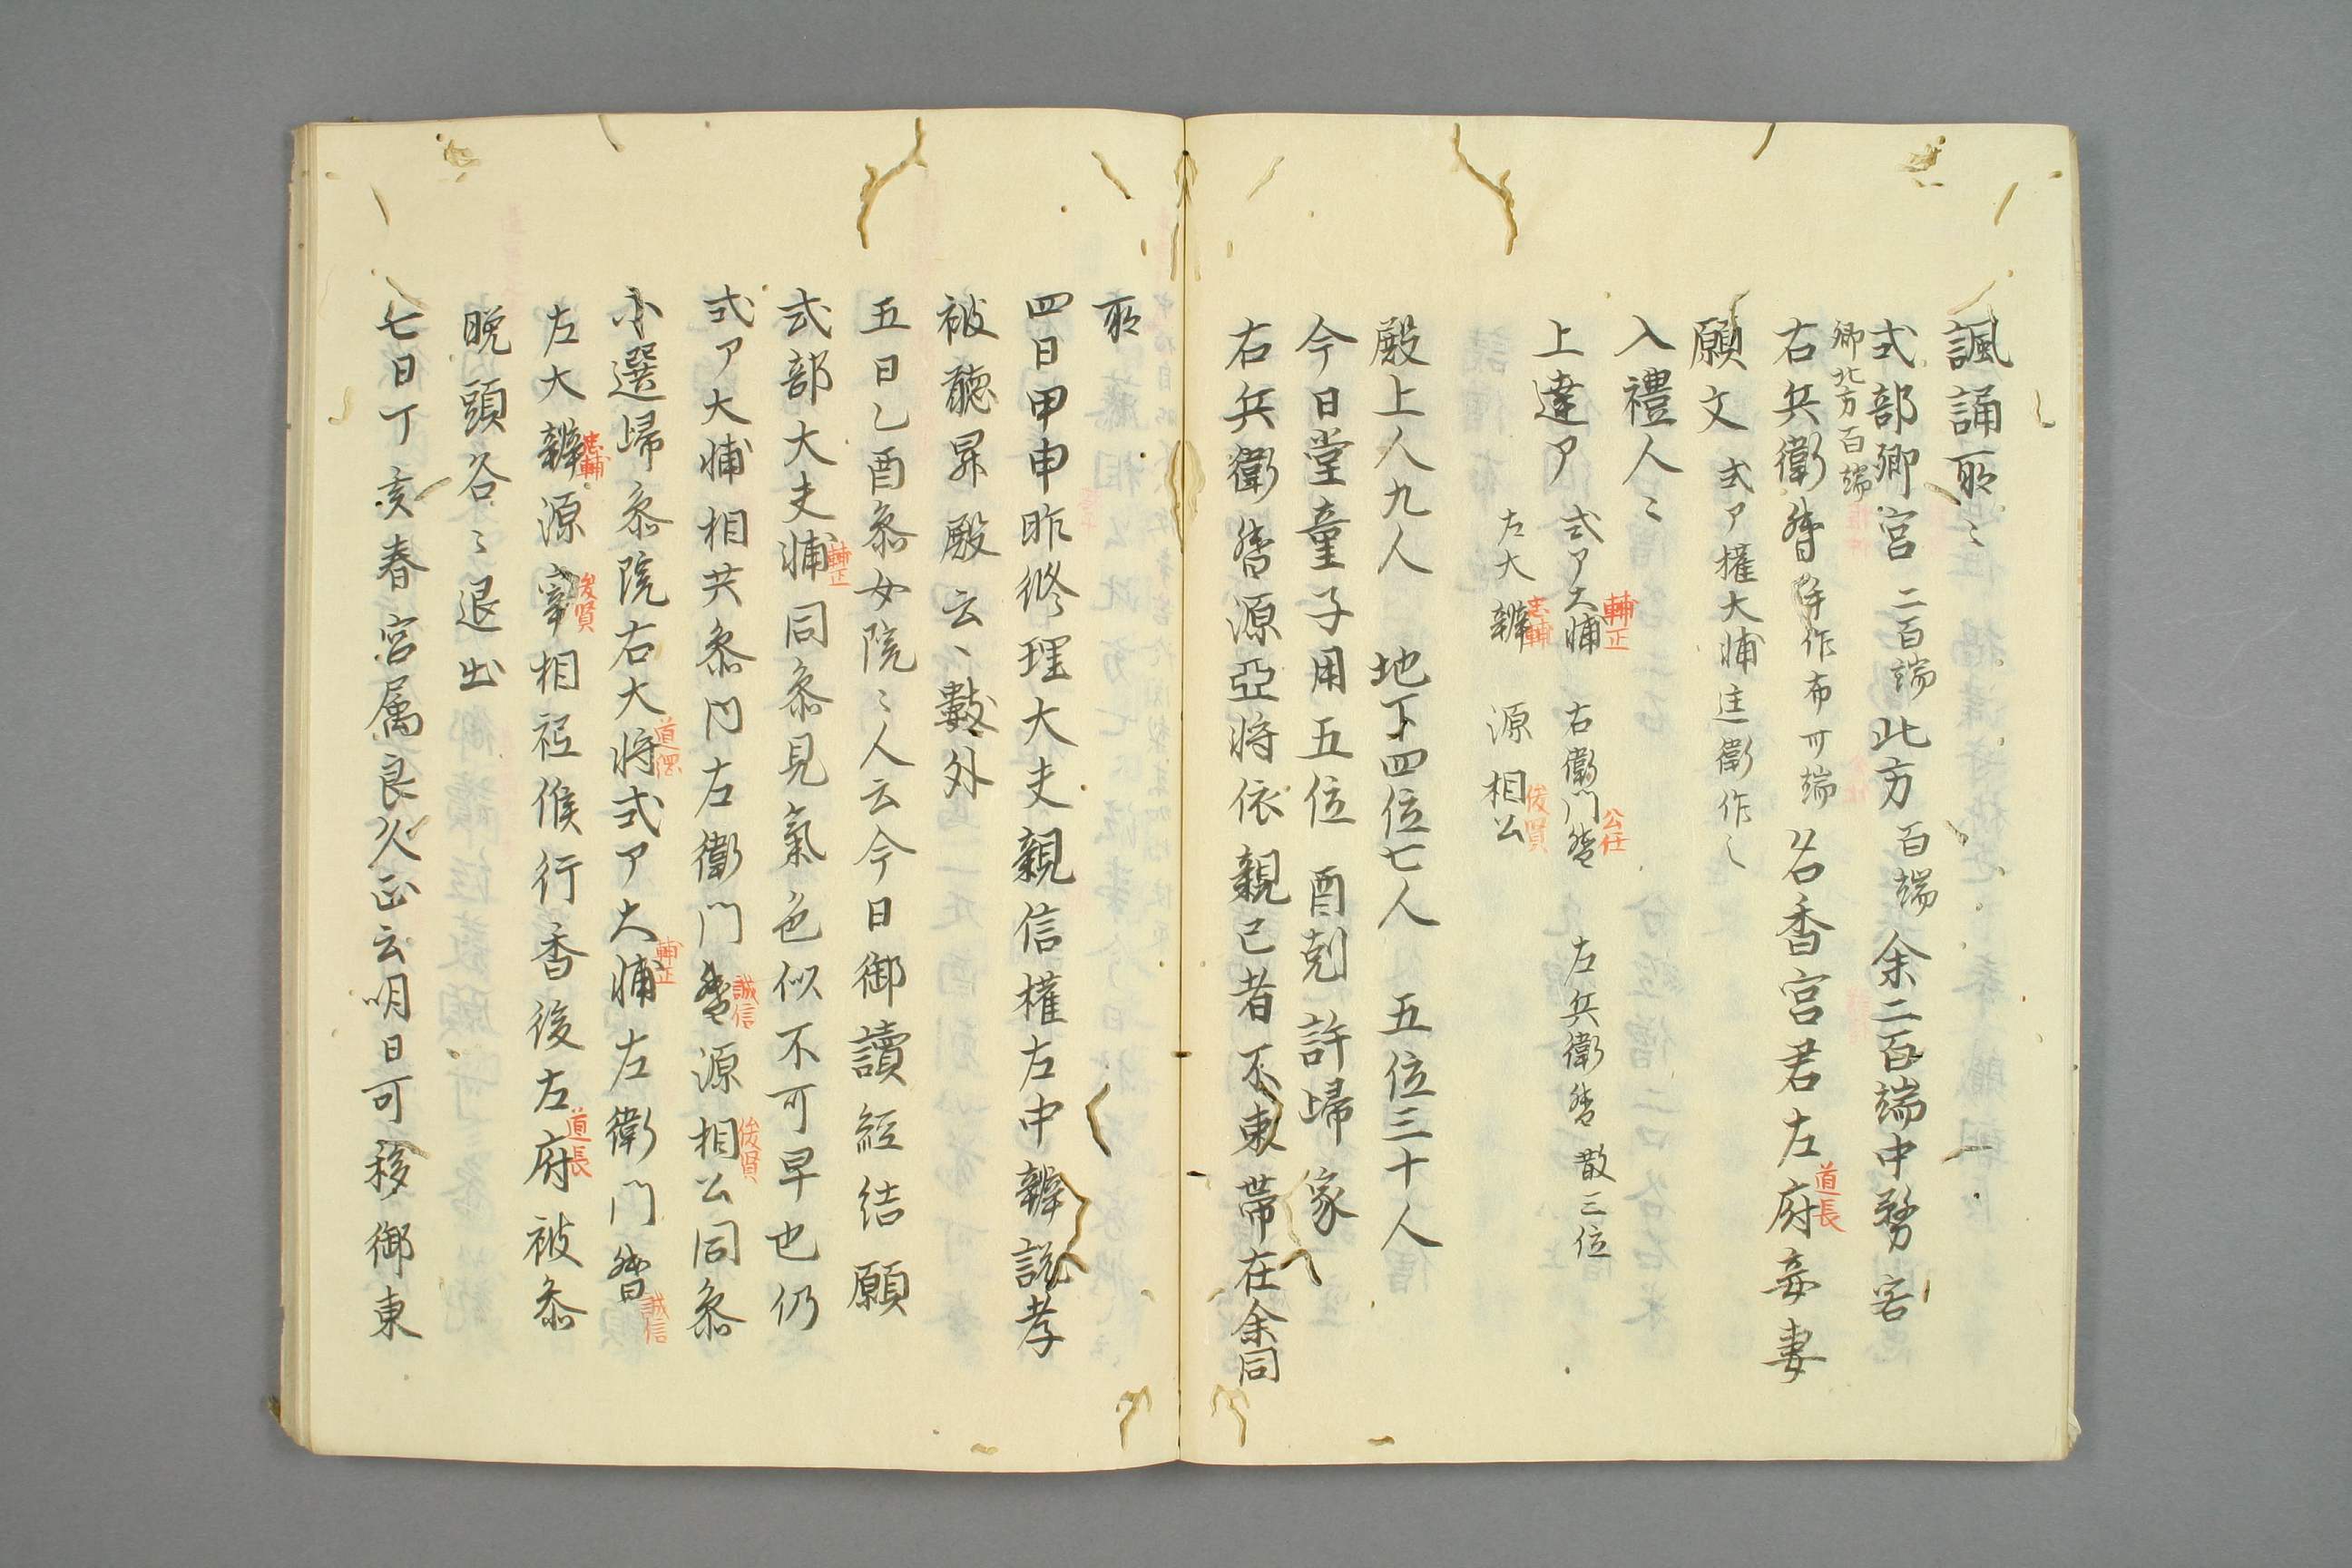 諷誦所〻
式部卿宮 二百端 北方 百端 余二百端中務
卿 北方百端
右兵衛督 手作布 端 名香宮君左府妾妻
道長
願文 式ア權大輔匡衡作之
入禮人〻
上達ア 式ア大輔 右衛門督 左兵衛督 散三位
輔正 公任
左大辨 源相公
忠輔 俊賢
殿上人九人 地下四位七人 五位三十人
今日堂童子用五位 酉剋許歸家
右兵衛督源亞將依親已者不束帶在余同
所
四日甲申昨修理大夫親信權左中辨説孝
被聽昇殿云、數外
五日乙酉參女院〻人云今日御讀經結願
式部大夫輔同參見氣色似不可早也仍
輔正
式ア大輔相共參門左衛門督源相公同參
誠信 俊賢
小選歸參院右大將式ア大輔左衛門督
道綱 輔正 誠信
左大辨源宰相祗候行香後左府被參
忠輔 俊賢 道長
晩頭各〻退出
七日丁亥春宮属良火正云明日可移御東